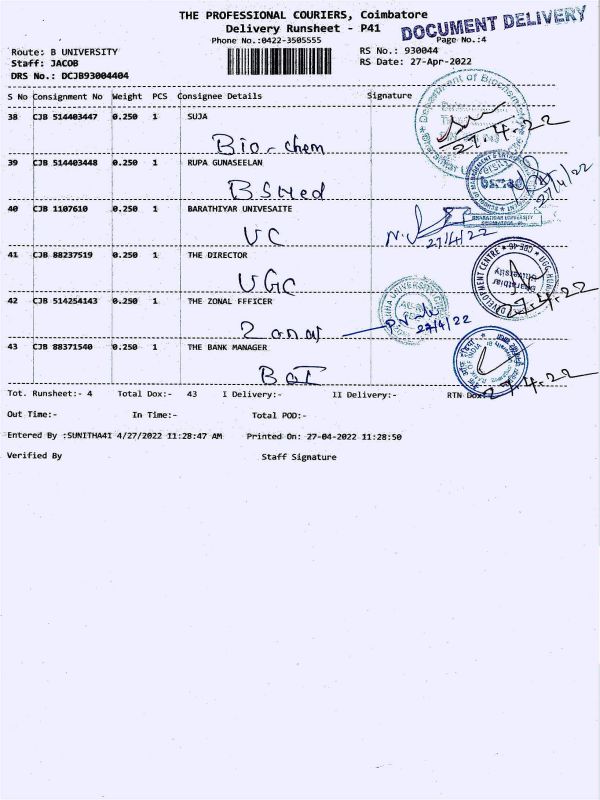 THE PROFESSIONAL COURIERS, Coimbatore
DOCUMENT DELIVERY
Delivery Runsheet - P41
Phone No.:0422-3505555
Page No.:4
Route: B UNIVERSITY
RS No.: 930044
Staff: JACOB
RS Date: 27-Apr-2022
DRS No.: DCJB93004404
S No Consignment No Weight PCS Consignee Details Signature
38 CJB 514403447 0.250 1 SUJA
Bio-chem
27.4.22
39 CJB 514403448 0.250 1 RUPA GUNASEELAN
BSMed
27/4/22
40 CJB 1107610 0.250 1 BARATHIYAR UNIVESAITE
VC
27/4/22
41 CJB 88237519 0.250 1 THE DIRECTOR
UGC
27.4.22
42 CJB 514254143 0.250 1 THE ZONAL FFFICER
Zonal
27/4/22
43 CJB 88371540 0.250 1 THE BANK MANAGER
BOI
27.4.22
Tot. Runsheet:- 4 Total Dox:- 43 I Delivery:- II Delivery:- RTN Dox:-
Out Time:- In Time:- Total POD:-
Entered By :SUNITHA41 4/27/2022 11:28:47 AM Printed On: 27-04-2022 11:28:50
Verified By Staff Signature